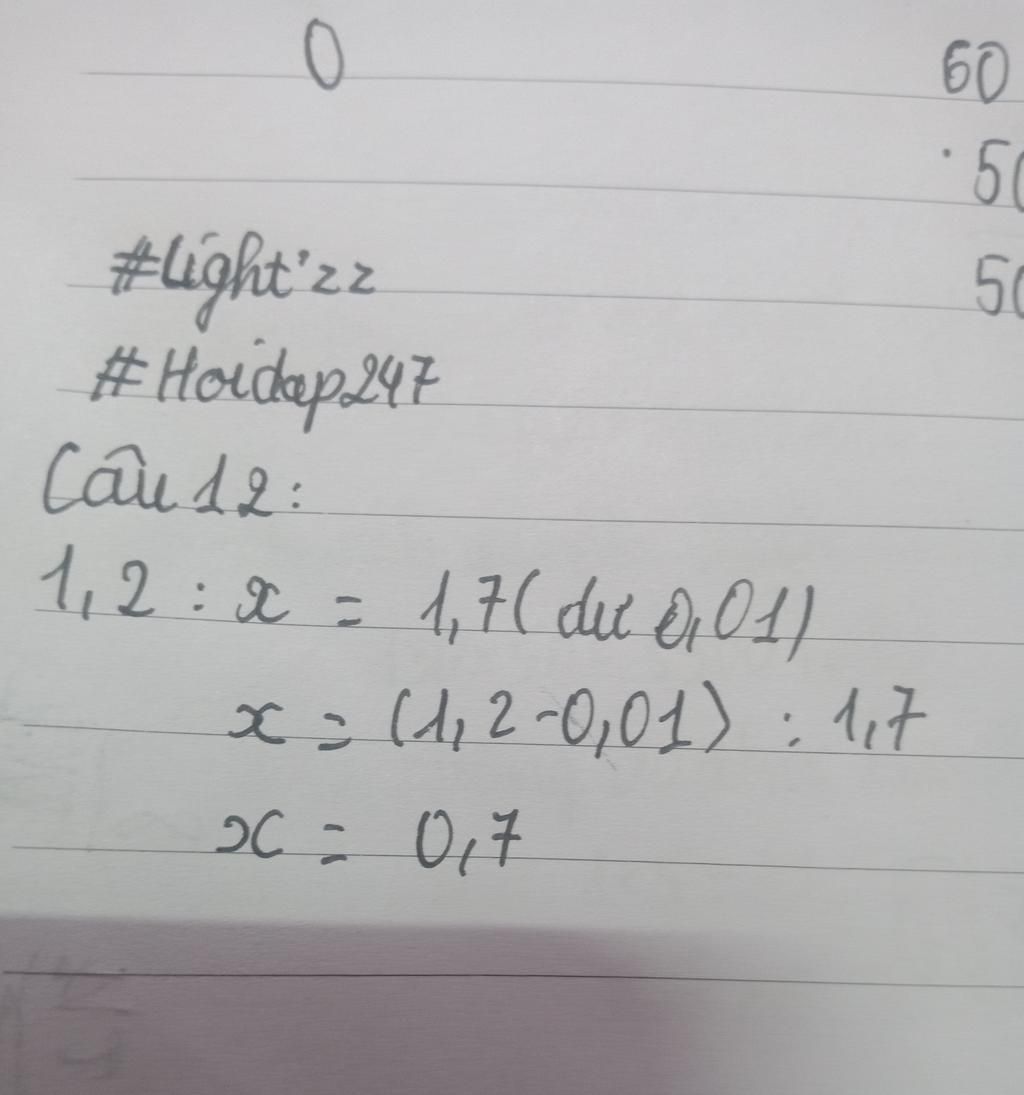 0 60
50
#Light'zz 50
#Hoidap247
Câu 12:
1,2 : x = 1,7 ( dư 0,01)
x = (1,2 - 0,01) : 1,7
x = 0,7